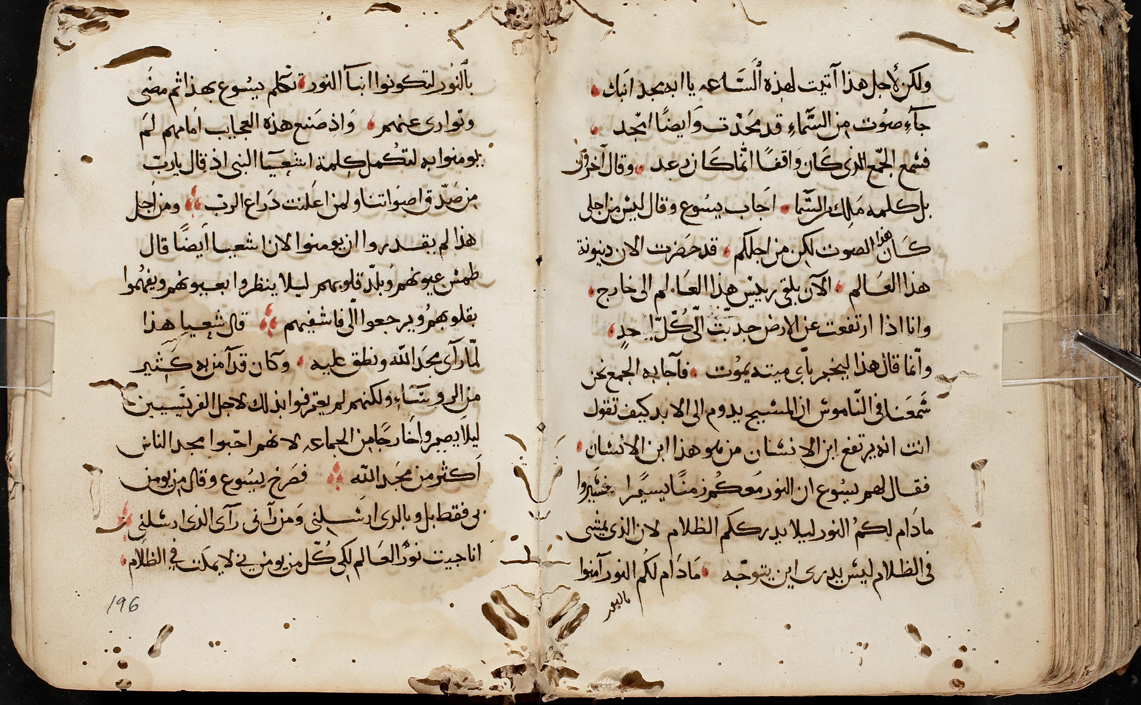 ولكن لأجل هذا آتيت لهذه السَّاعه يا ابه مجد ابنك
جآء صوت من السَّماء قد مجّدت وايضًا امجد
فسمع الجمع الذى كان واقفًا انما كان رعد وقال آخرون
بل كلمه ملاك من السَّما اجاب يسوع وقال ليس من اجلى
كان هذا الصوت لكن من اجلكم قد حضرت الان دينونة
هذا العالم الآن يلقى رييس هذا العالم الى خارج
وانا اذا ارتفعت عن الارض جدبت الىّ كلّ احدٍ
وانّما قال هذا ليخبر بأى ميتة يموت فآجابه الجمع نحن
سمعنا فى النّاموس ان المسيح يدوم الى الابد كيف تقول
انت انه يرتفع ابن الانسان من هو هذا ابن الانسان
فقال لهم يسوع ان النور معكم زمنًا يسيرًا فسيروا
مادام لكم النور ليلا يدرككم الظلام لان الذى يمشى
فى الظلام ليس يدرى اين يتوجّه مادام لكم النور آمنوا
بالنور
بالنّور لتكونوا ابنآ النور تكلم يسوع بهذا ثم مضى
وتوارى عنهم واذ صنع هذه العجايب امامهم لم
يومنوا به لتكمل كلمة اشعيآ النبى اذ قال يارب
من صدّق اصواتنا ولمن اعلنت ذراع الرب ومن اجل
هذا لم يقدروا ان يومنوا لان اشعيا ايضًا قال
طمس عيونهم وبلّد قلوبهم ليلا ينظروا بعيونهم ويفهموا
بقلوبهم ويرجعوا الىّ فاشفيهم قال شعيا هذا
لمّا رآى مجد الله ونطق عليه وكان قد آمن به كثير
من الروسَآء ولكنهم لم يعترفوا بذلك لاجل الفريسيين
ليلا يصيروا خارجًا من الجماعه لانهم احبّوا مجد الناس
آكثر من مجد الله فصرخ يسوع وقال من يومن
بى فقط بل وبالدى ارسلنى ومن رآنى رآى الذى ارسلنى
انا جيت نورُ العالم لكى كُلّ من يومن بى لا يمكث فى الظلام
196